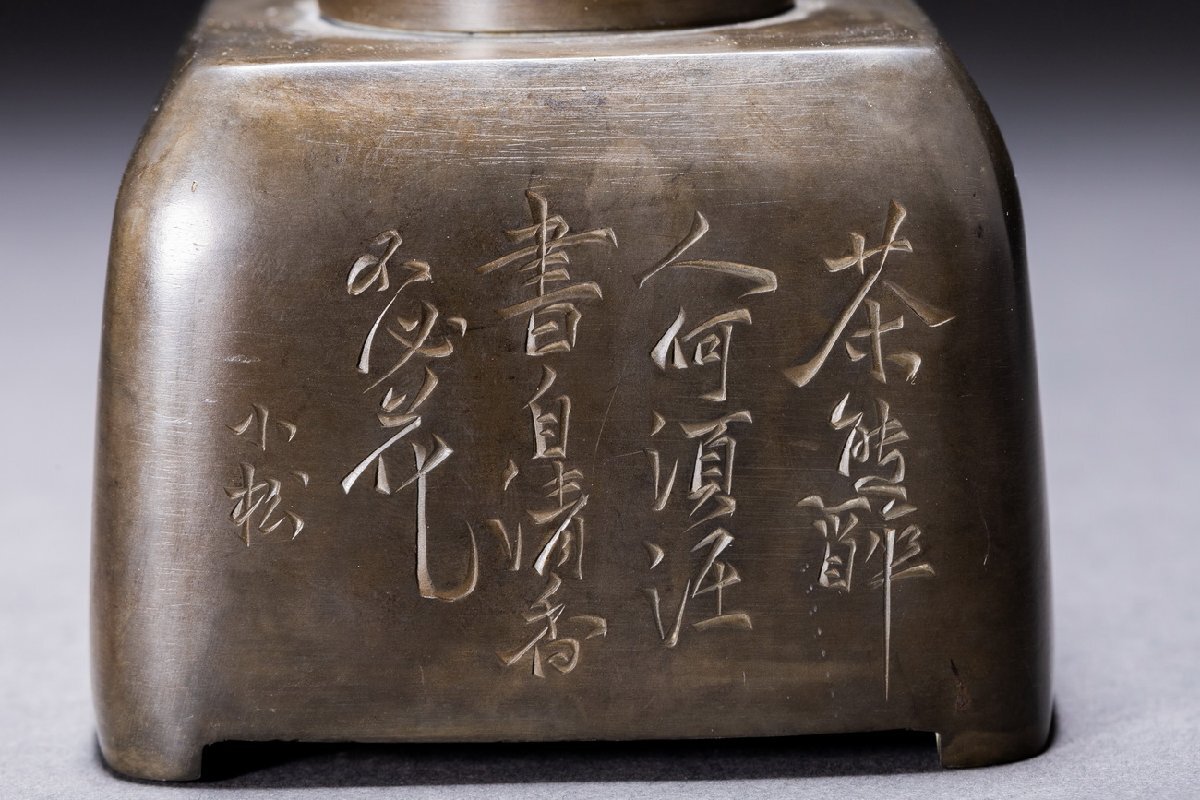 茶熊醉
人何湏涯
書自清香
不必花
小松